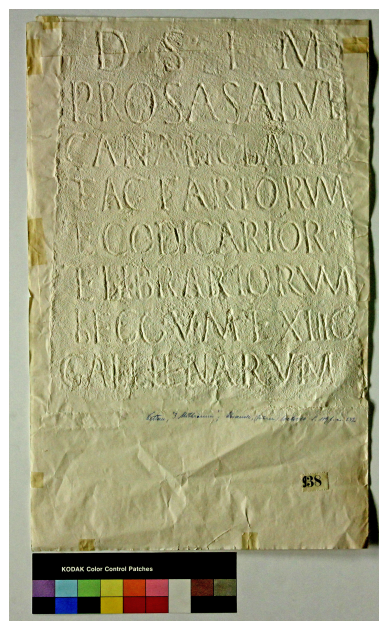 D S I M
PROSASALVT
CANALICLARI
E ACTARIORVM
E CODICARIOR
E LIBRARIORVM
LEGG V M E XIII G
GALLIENARVM
938
KODAK Color Control Patches